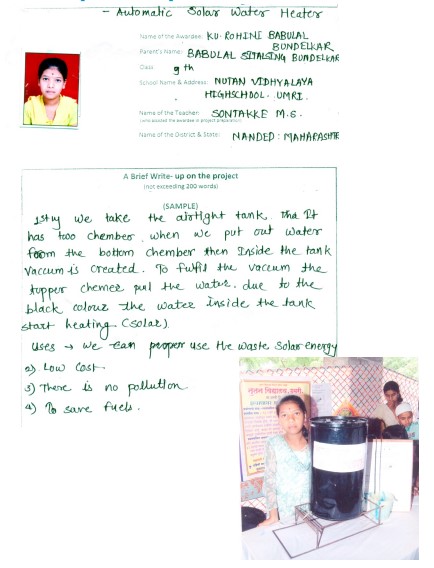 - Automatic Solar Water Heater
Name of the Awardee: KU. ROHINI BABULAL
BUNDELKAR
Parent's Name: BABULAL SITALSING BUNDELKAR
Class 9th
School Name & Address: NUTAN VIDHYALAYA
HIGHSCHOOL. UMRI.
Name of the Teacher: SONTAKKE M.S.
(who assisted the awardee in project preparation)
Name of the District & State: NANDED: MAHARASHTR
A Brief Write- up on the project
(not exceeding 200 words)
(SAMPLE)
1stly we take the airtight tank. the It
has too chember. when we put out water
from the bottom chember then Inside the tank
vaccum is created. To fulfil the vaccum the
topper chemer pul the water. due to the
black colour the water inside the tank
start heating (solar).
Uses → we can proper use the waste solar energy
2) Low cost
3) There is no pollution
4) To save fuels.
नूतन विद्यालय, उमरी